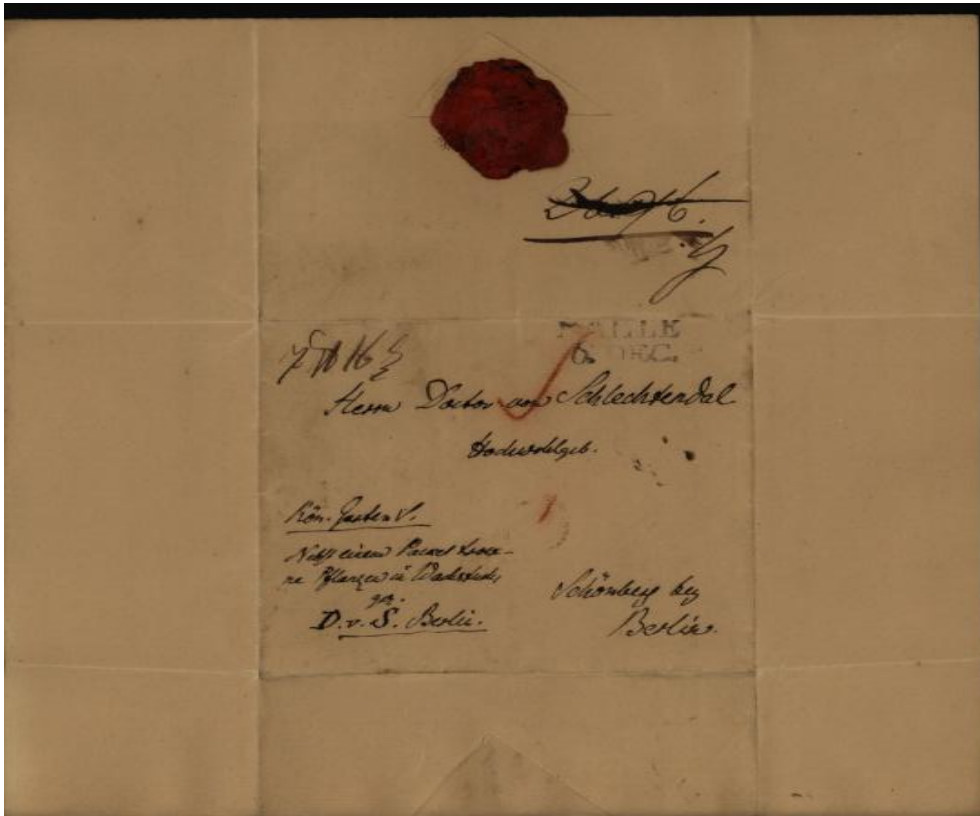 HALLE
6. DEC.
Herrn Doctor von Schlechtendal
Hochwohlgeb.
Kön. Garten
Nebst einem Packet trock-
ne Pflanzen in Wachstuch,
gez.
D. v. S. Berlin.
Schönberg bey
Berlin.